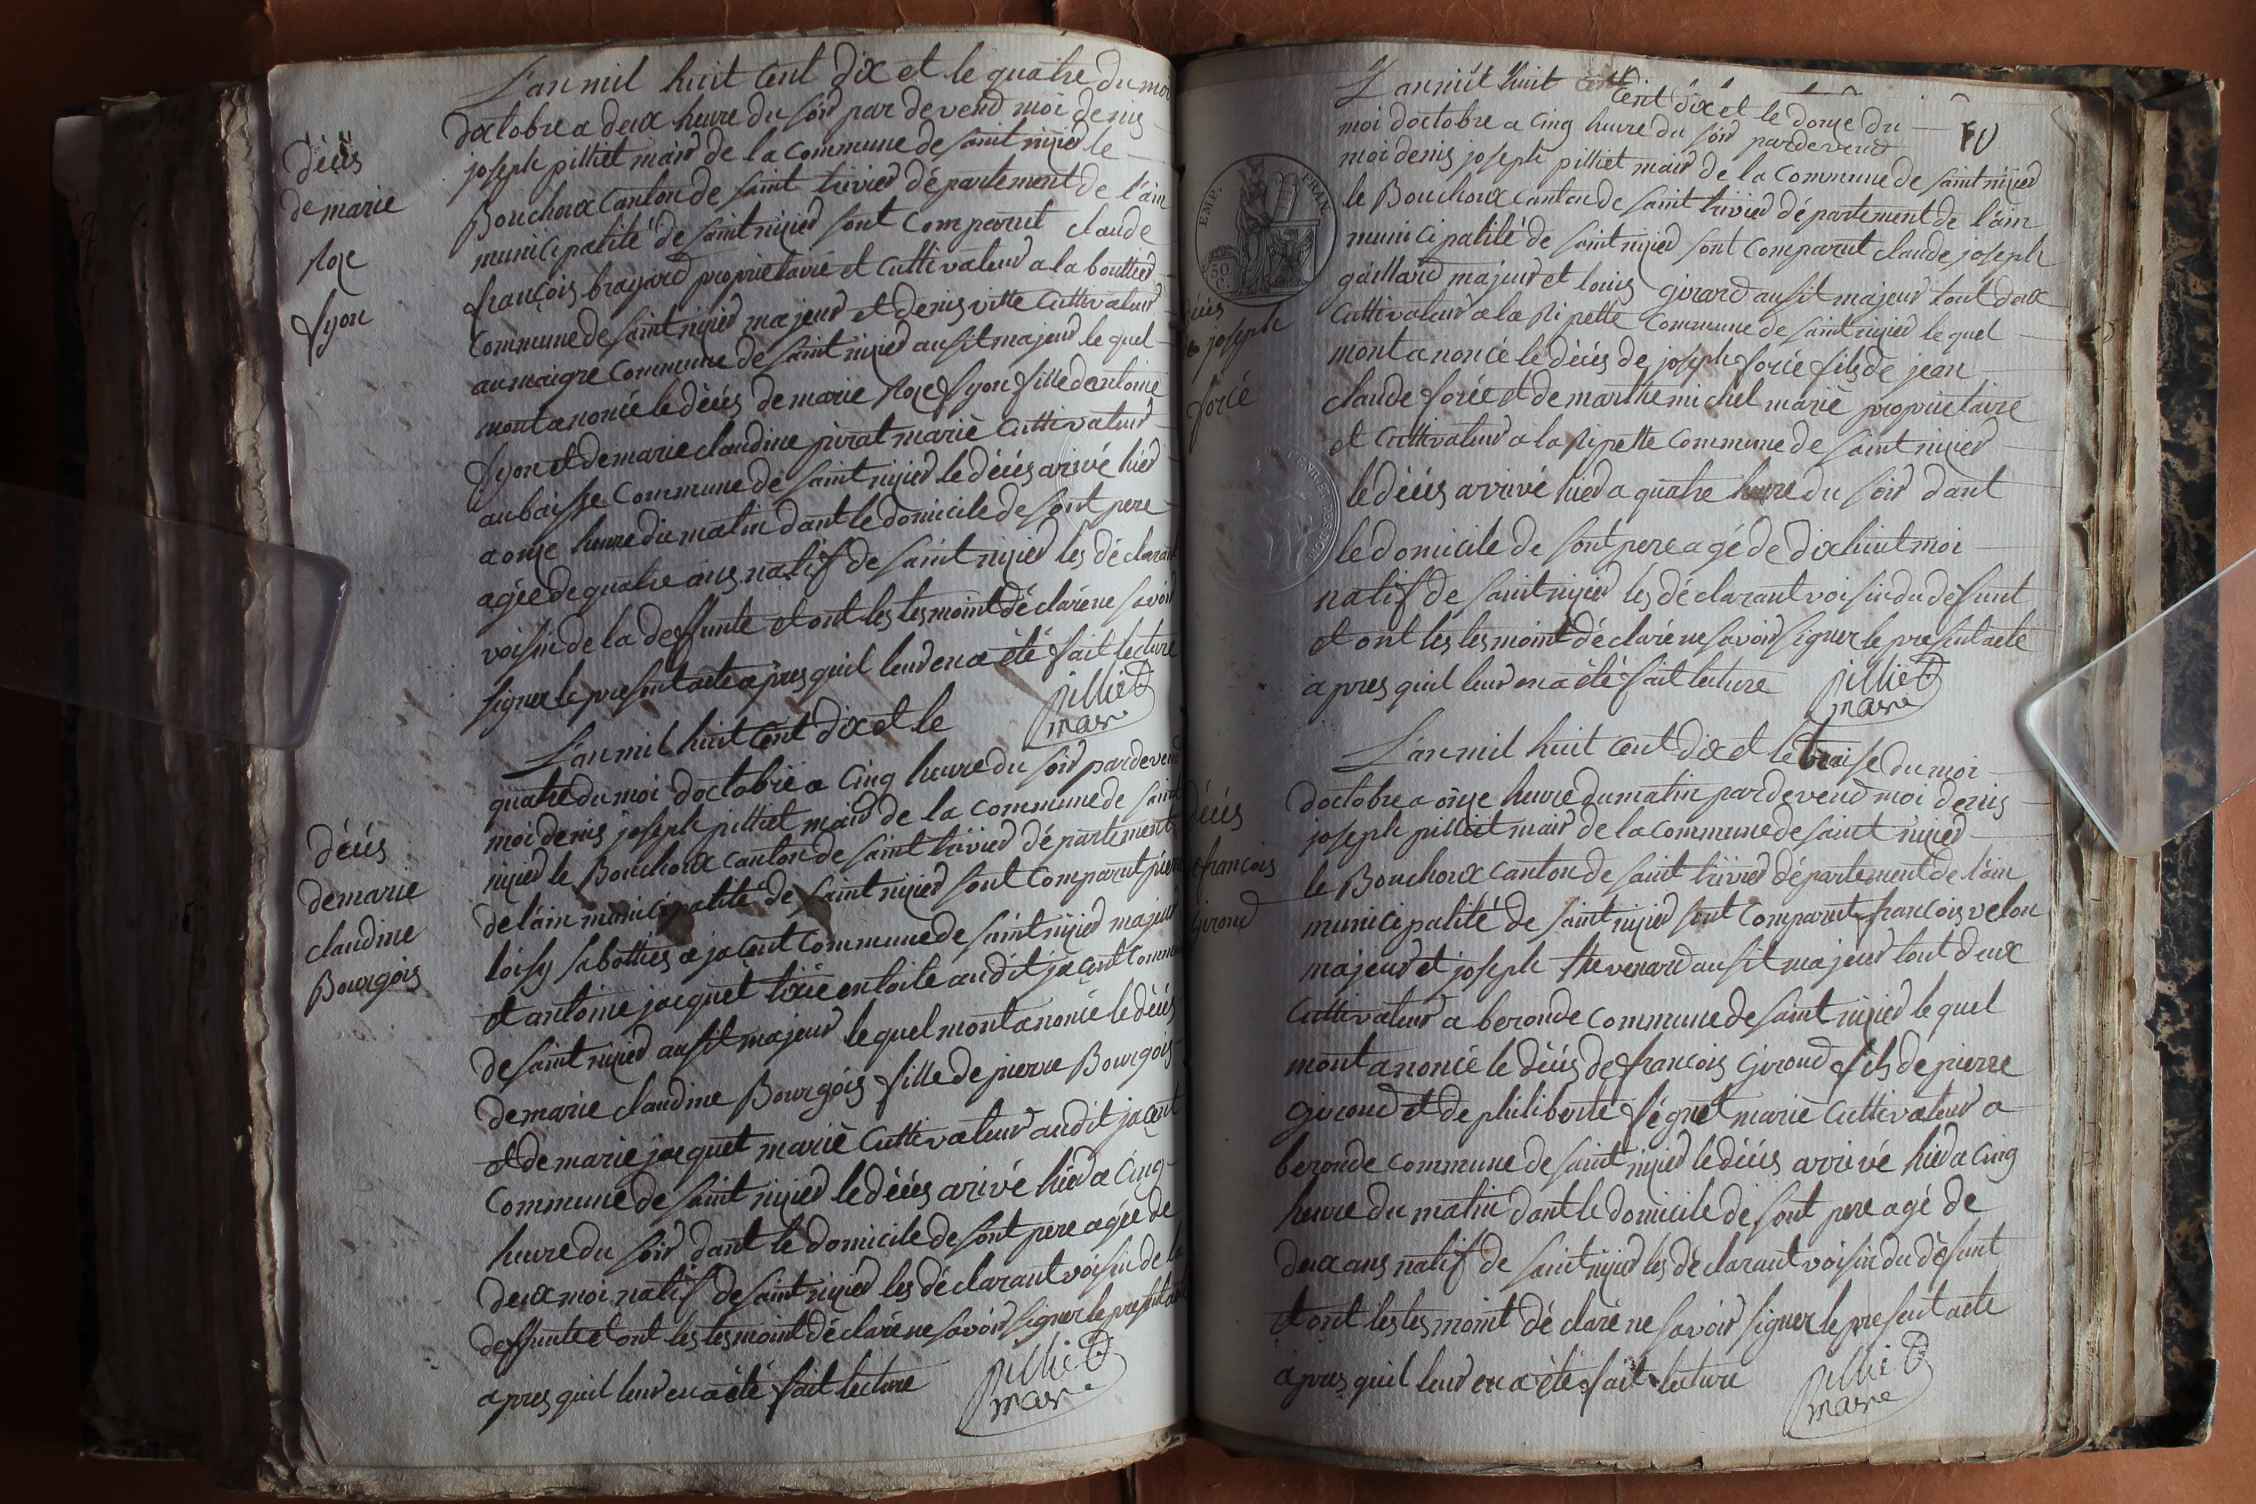 L'an mil huit Cent dix et le quatre du moi
doctobre a deux heure du soir par devend moi denis
joseph pilliet mair de la commune de saint nizied le
Bouchoux Canton de saint trivied département de l'ain
municipalité de saint nizied sont comparut claude
françois brayard propriétaire et cultivateur a la bouttied
Commune de saint nizied majeur et denis vitte cultivateur
au maigre Commune de saint nizied ausit majeur le quel
mont anoncé le décés de marie Roze fyon fille dantoine
fyon et de marie claudine pirat marié cultivateur
au baisse Commune de saint nizied le décés arivé hied
a onze heure du matin dant le domicile de sont pere
agée de quatre ans natif de saint nizied les déclarant
voisin de la deffunte et ont les tesmoint déclaré ne savoir
signer le present acte apres quil leur en a été fait lecture
pilliet
mair
décés
de marie
Roze
fyon
L'an mil huit Cent dix et le
quatre du moi doctobre a Cinq heure du soir pardevend
moi denis joseph pilliet mair de la commune de saint
nizied le Bouchoux canton de saint trivied département
de l'ain municipalité de saint nizied sont comparut pierre
loisy sabottier a jacent commune de saint nizied majeur
et antoine jacquet tixié en toile audit jacent Commune
de saint nizied ausit majeur le quel mont anoncé le décés
de marie claudine Bourgois fille de pierre Bourgois
et de marie jacquet marié cultivateur audit jacent
Commune de saint nizied le décés arivé hied a Cinq
heure du soir dant le domicile de sont pere agée de
deux moi natif de saint nizied les déclarant voisin de la
deffunte et ont les tesmoint déclaré ne savoir signer le present acte
apres quil leur en a été fait lecture
pilliet
mair
décés
de marie
claudine
Bourgois
L'an mil huit Cent dix et le douze du
moi doctobre a Cinq heure du soir pardevend
moi denis joseph pilliet mair de la Commune de saint nizied
le Bouchoux canton de saint trivied département de l'ain
municipalité de saint nizied sont comparut claude joseph
gaillard majeur et louis girard ausit majeur tout deux
Cultivateur a la Ripette Commune de saint nizied le quel
mont anoncé le décés de joseph forié fils de jean
claude forié et de marthe michel marié propriétaire
et Cultivateur a la Ripette Commune de saint nizied
le décés arrivé hied a quatre heure du soir dant
le domicile de sont pere agé de dix huit moi
natif de saint nizied les déclarant voisin du défunt
et ont les tesmoint déclaré ne savoir signer le present acte
apres quil leur en a été fait lecture
pilliet
mair
50
EMP. FRAN.
50
C.
décés
joseph
forié
L'an mil huit cent dix et le traise du moi
doctobre a onze heure du matin pardevend moi denis
joseph pilliet mair de la commune de saint nizied
le Bouchoux canton de saint trivied département de l'ain
municipalité de saint nizied sont comparut françois velon
majeur et joseph thevenard ausit majeur tout deux
Cultivateur a beronde commune de saint nizied le quel
mont anoncé le décés de françois Giroud fils de pierre
giroud et de philiberte féguet marié cultivateur a
beronde commune de saint nizied le décés arrivé hied a Cinq
heure du matin dant le domicile de sont pere agé de
deux ans natif de saint nizied les déclarant voisin du défunt
et ont les tesmoint déclaré ne savoir signer le present acte
apres quil leur en a été fait lecture
pilliet
mair
décés
françois
Giroud